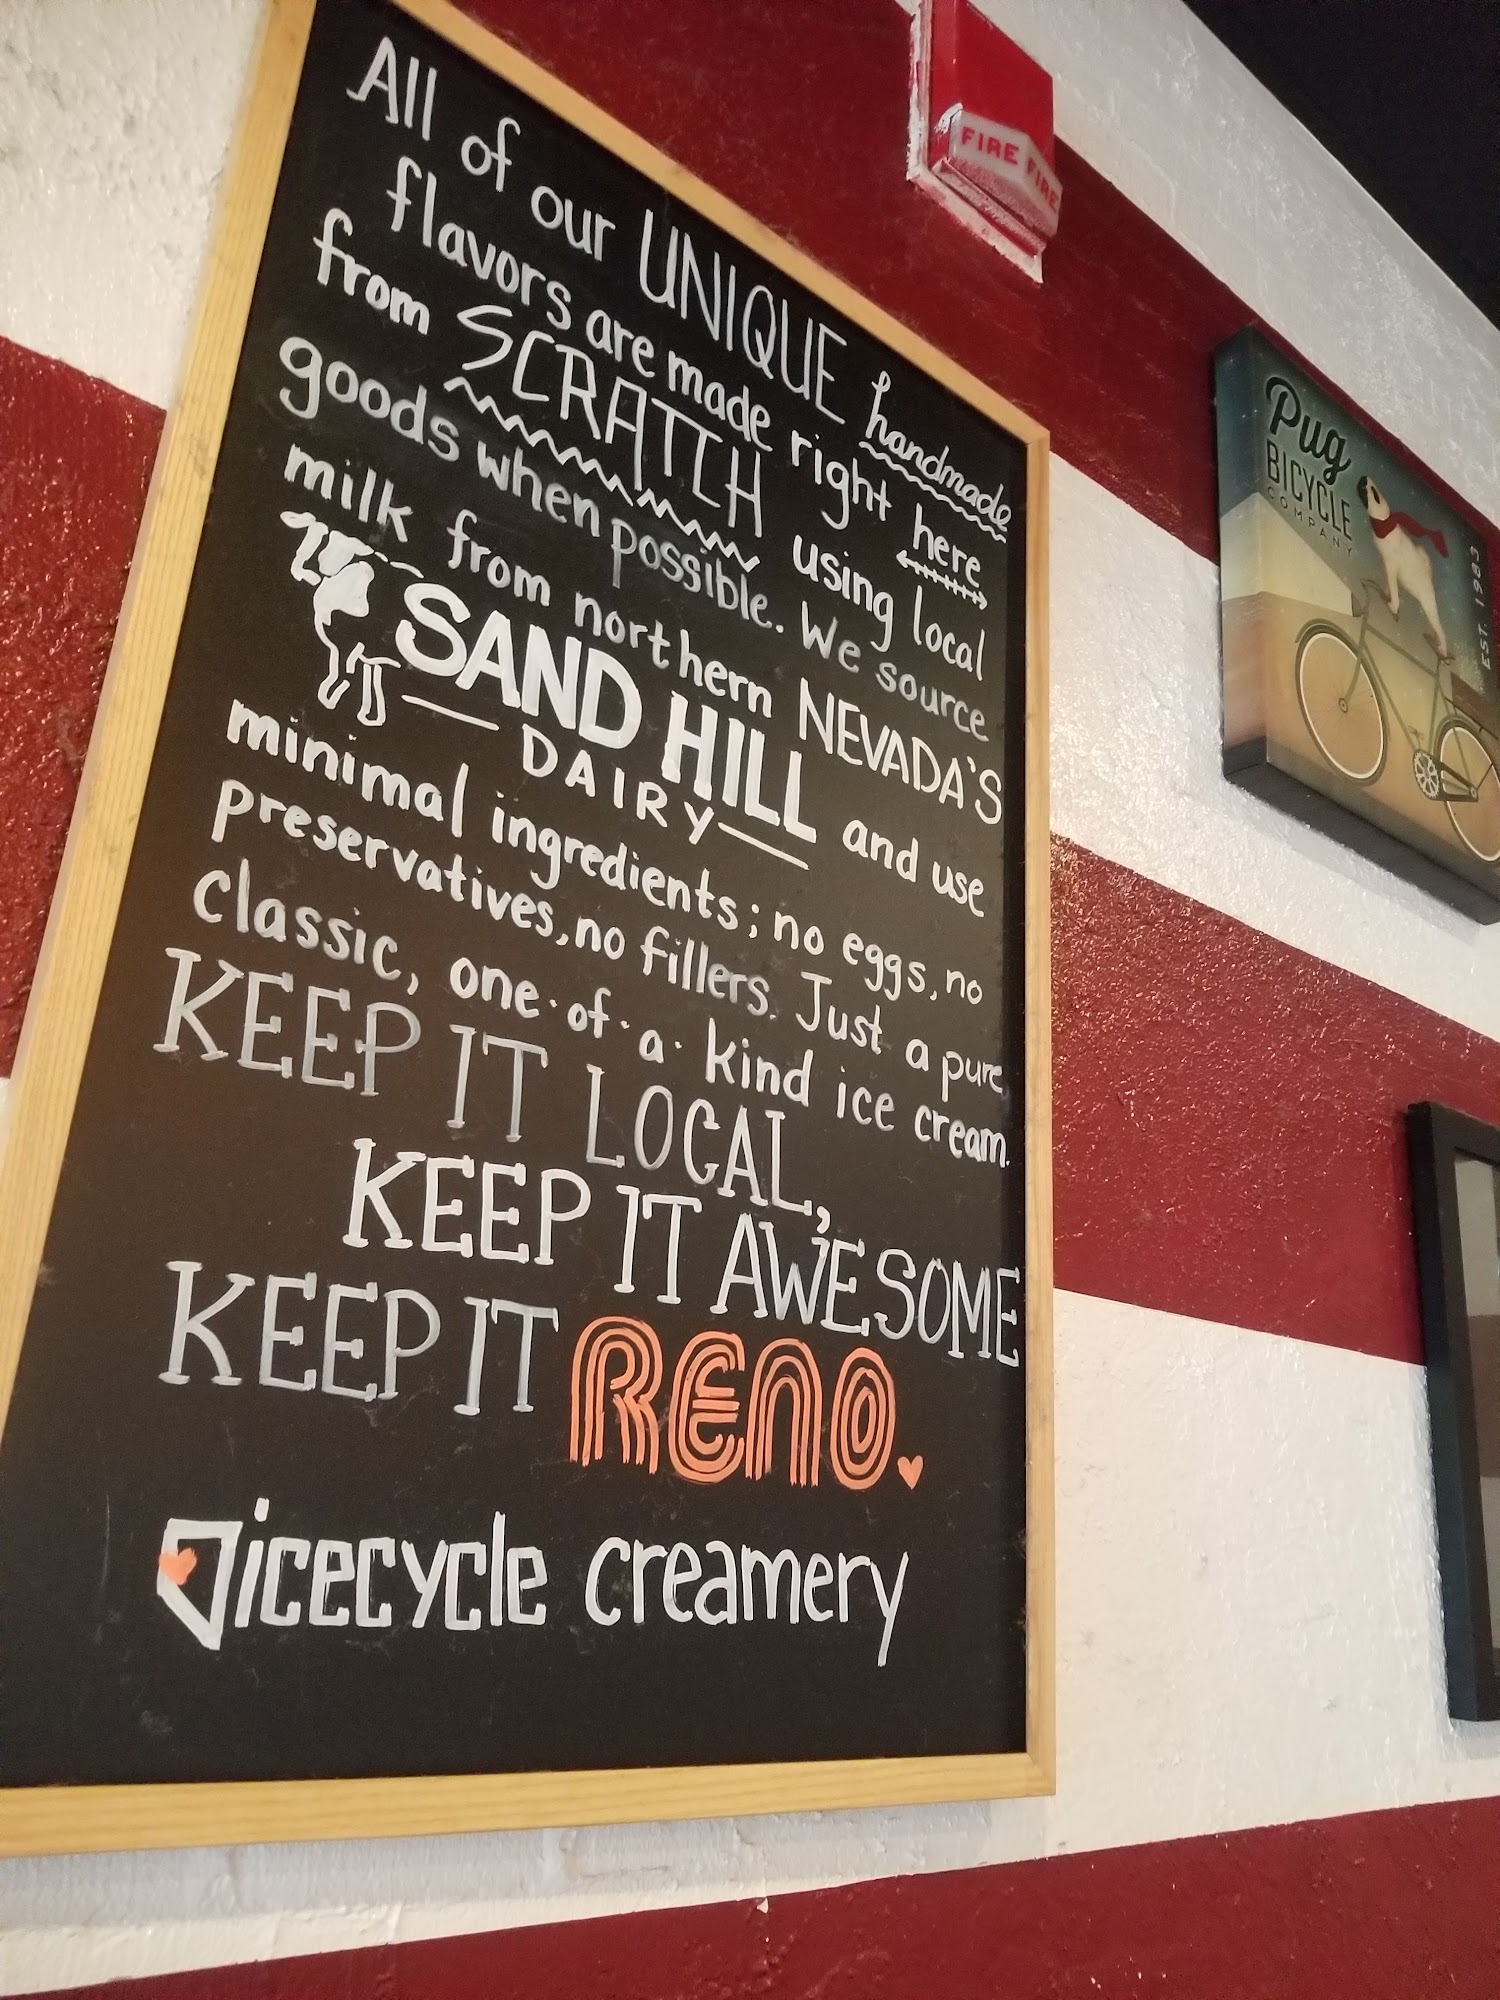 All of our UNIQUE handmade
flavors are made right here
from SCRATCH using local
goods when possible. We source
milk from northern NEVADA'S
SAND HILL and use
DAIRY
minimal ingredients; no eggs, no
preservatives, no fillers. Just a pure,
classic, one·of·a·kind ice cream.
KEEP IT LOCAL,
KEEP IT AWESOME
KEEP IT RENO.
icecycle creamery
FIRE FIRE
Pug
BICYCLE
COMPANY
EST. 1983